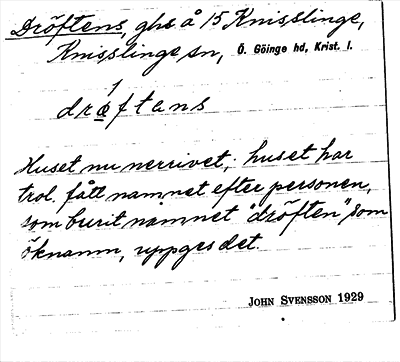 Dröftens, ghs å 15 Knisslinge,
Knisslinge sn, Ö. Göinge hd, Krist. l.
dræftens
Huset nu nerrivet; huset har
trol. fått namnet efter personen,
som burit namnet "dröften" som
öknamn, uppges det.
JOHN SVENSSON 1929